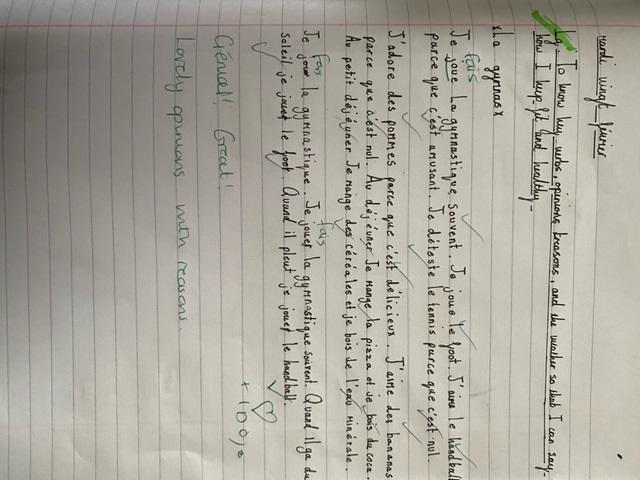 mardi vingt février
Lg - To know key verbs, opinions & reasons, and the weather so that I can say -
how I keep fit and healthy -
x La gymnas x
fais
Je joue la gymnastique souvent. Je joue le foot. J'aime le handball
parce que c'est amusant. Je déteste le tennis parce que c'est nul.
J'adore des pommes parce que c'est délicieux. J'aime des bananas
parce que c'est nul. Au déjeuner Je mange la pizza et je bois du coca.
Au petit déjéuner Je mange des céréales et je bois de l'eau minérale.
fais fais
Je joue la gymnastique. Je jouer la gymnastique souvent. Quand il ya du
soleil je jouer le foot. Quand il pleut je jouer le handball.
Génial! Great!
+100,0
Lovely opinions with reasons.